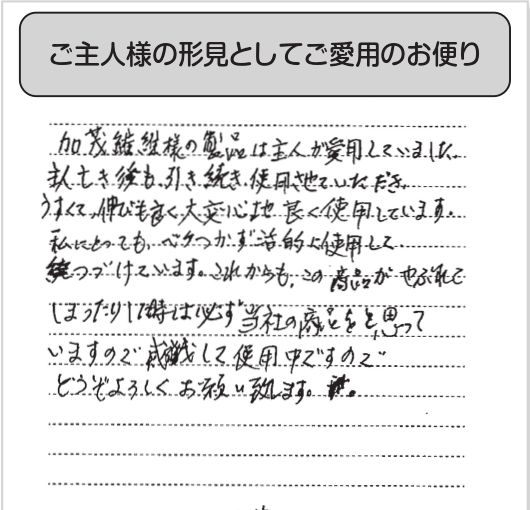 ご主人様の形見としてご愛用のお便り
加茂繊維様の製品は主人が愛用していました。
主人亡き後も、引き続き使用させていただき、
うすくて、伸びも良く大変心地良く使用しています。
私にとっても、ベタつかず活的に使用して
つづけています。これからも、この商品が やぶれて
しまったりし時は必ず当社の商品をと思って
いますので 感謝して使用中ですので
どうぞよろしくお願い致します。